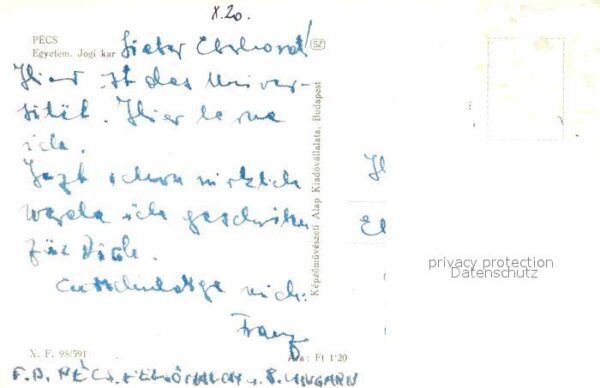 X. 20.
PÉCS
Egyetem. Jogi kar
Lieber Eberhard!
SZ
Hier ist das Univer-
sität. Hier lerne
ich.
Jezt schon wirklich
werde ich
für Dich.
mich:
Franz
Képzőművészeti Alap Kiadóvállalata, Budapest
X. F. 98/591
Ára: Ft 1·20
F.B. PÉCS. HUNGARN
privacy protection
Datenschutz